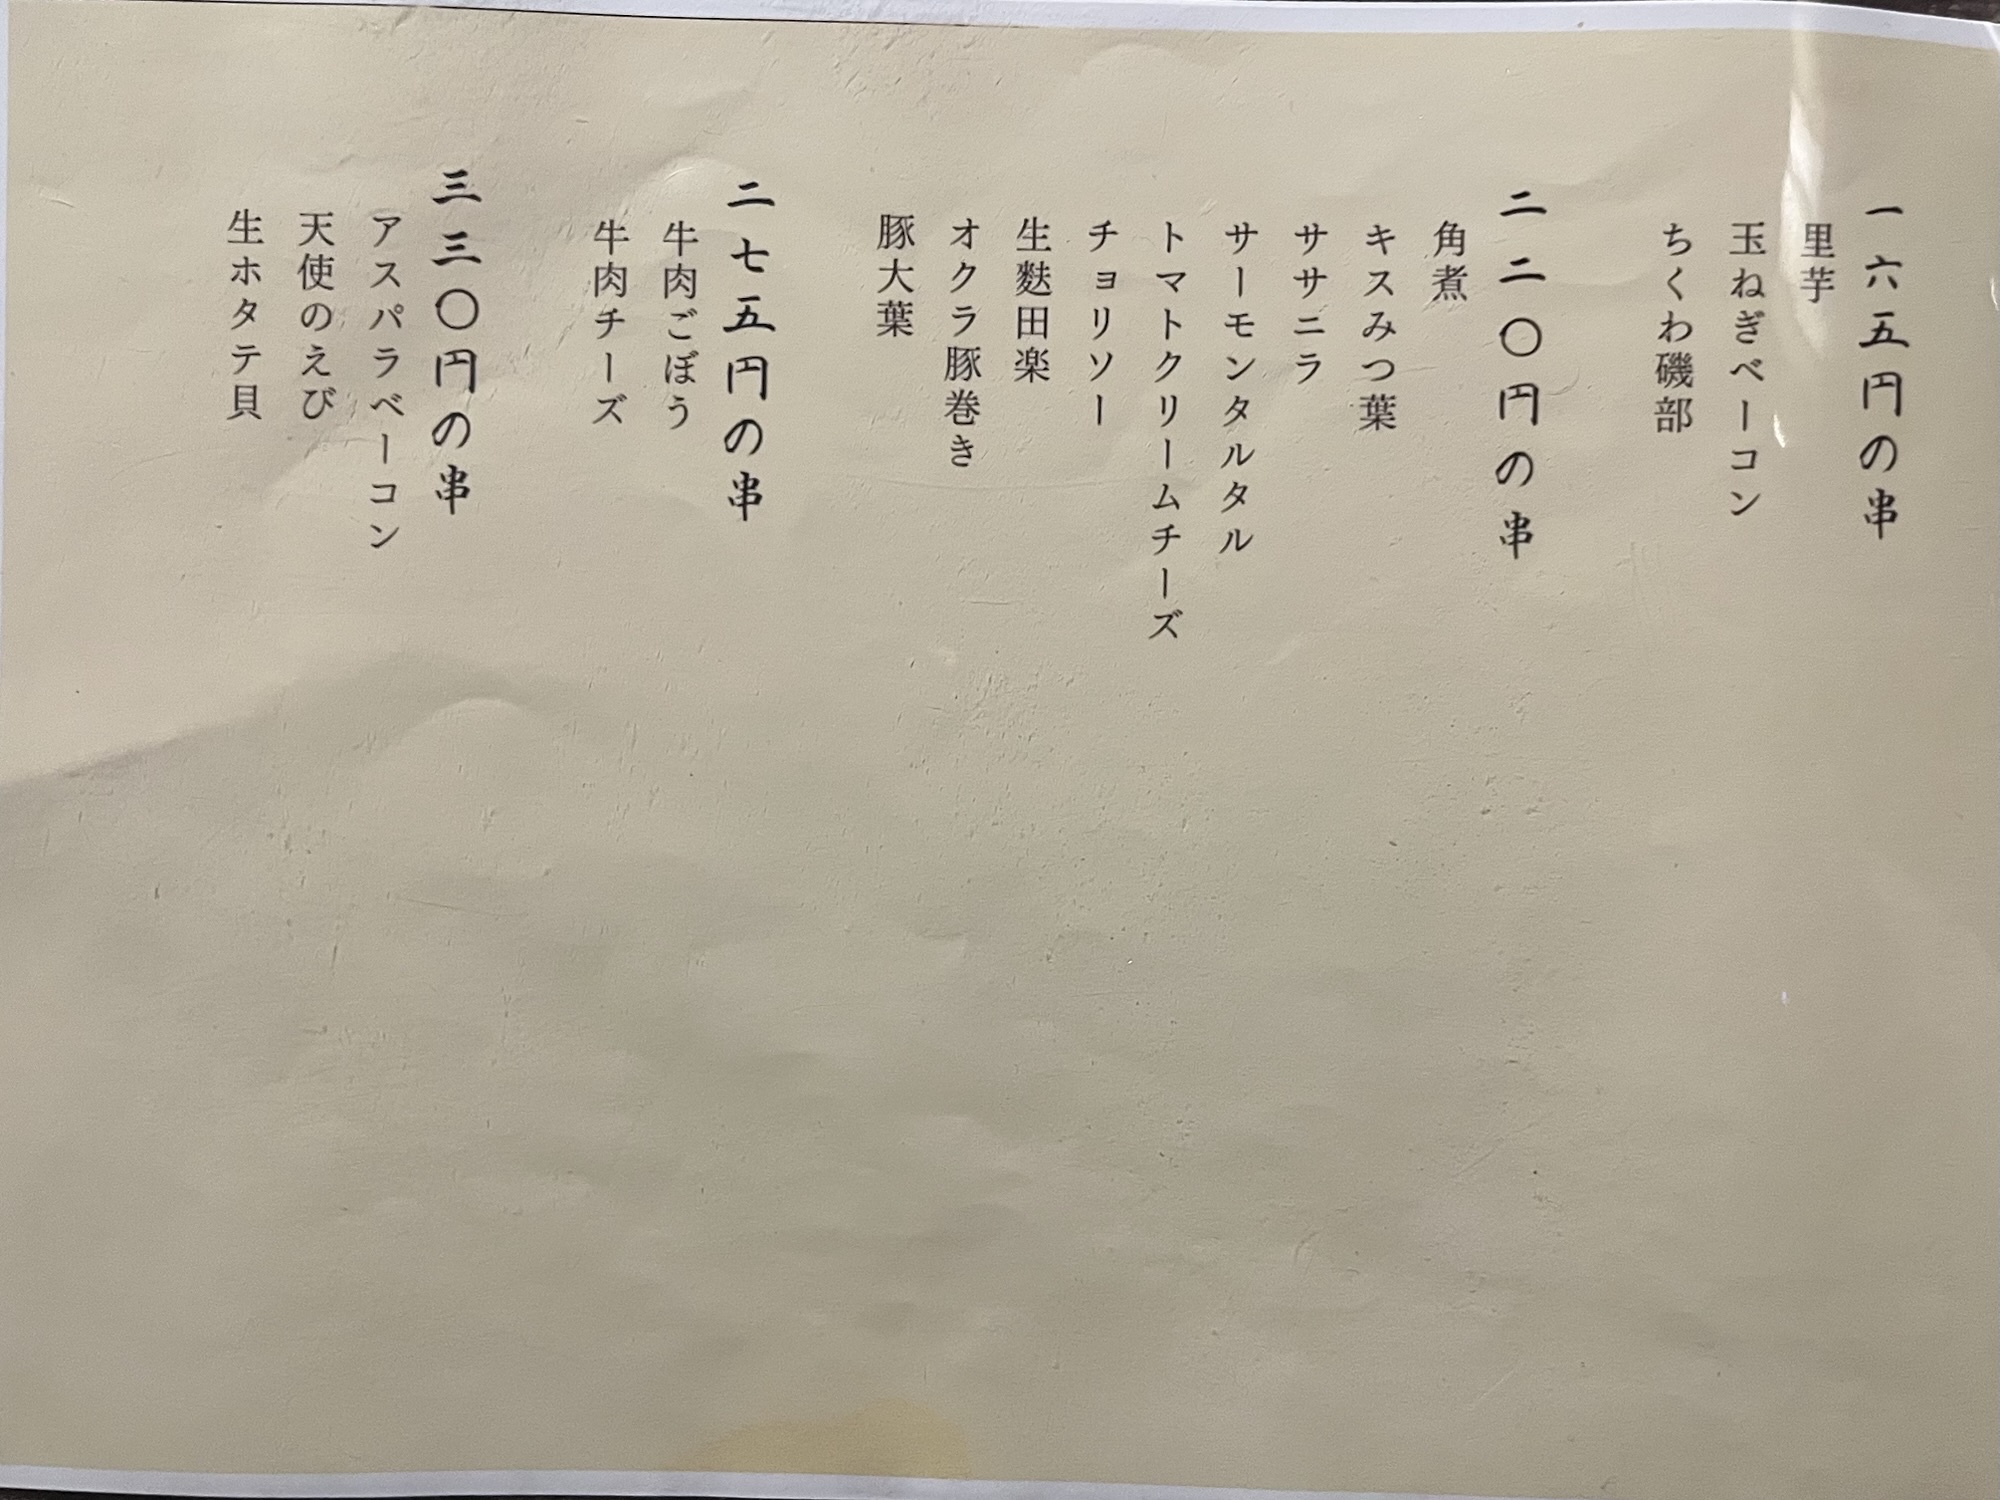 一六五円の串
里芋
玉ねぎベーコン
ちくわ磯部
二二〇円の串
角煮
キスみつ葉
ササニラ
サーモンタルタル
トマトクリームチーズ
チョリソー
生麩田楽
オクラ豚巻き
豚大葉
二七五円の串
牛肉ごぼう
牛肉チーズ
三三〇円の串
アスパラベーコン
天使のえび
生ホタテ貝